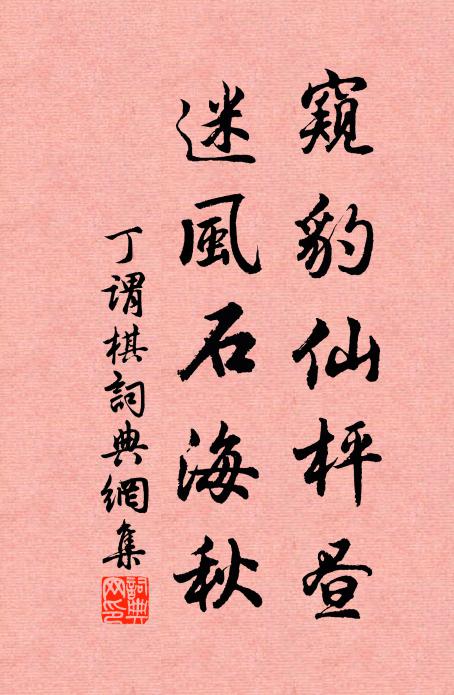 窺豹仙枰昼
迷風石海秋
丁谓棋詞典網集
詞典网印